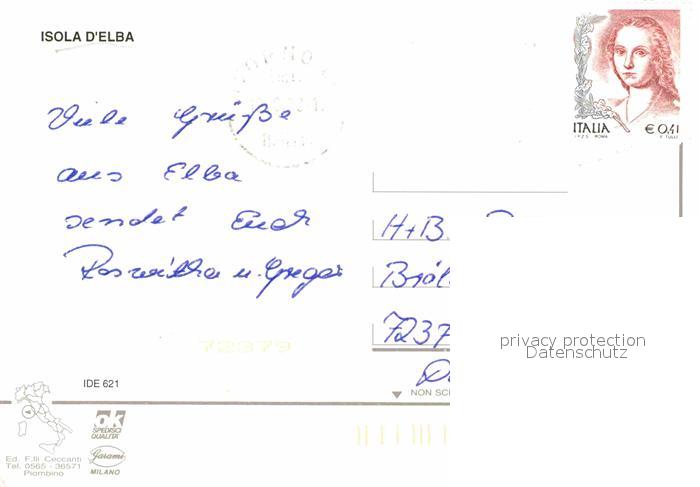 ISOLA D'ELBA
ITALIA € 0,41
I.P.Z.S. ROMA F. TULLI
Viele Grüße
aus Elba
sendet Euch
Roswitha u. Gregor
H+B.
7237
72379
privacy protection
Datenschutz
IDE 621
NON SC
ok
SPEDISCI
QUALITÀ
Garami
MILANO
Ed. F.lli Ceccanti
Tel. 0565 - 36571
Piombino